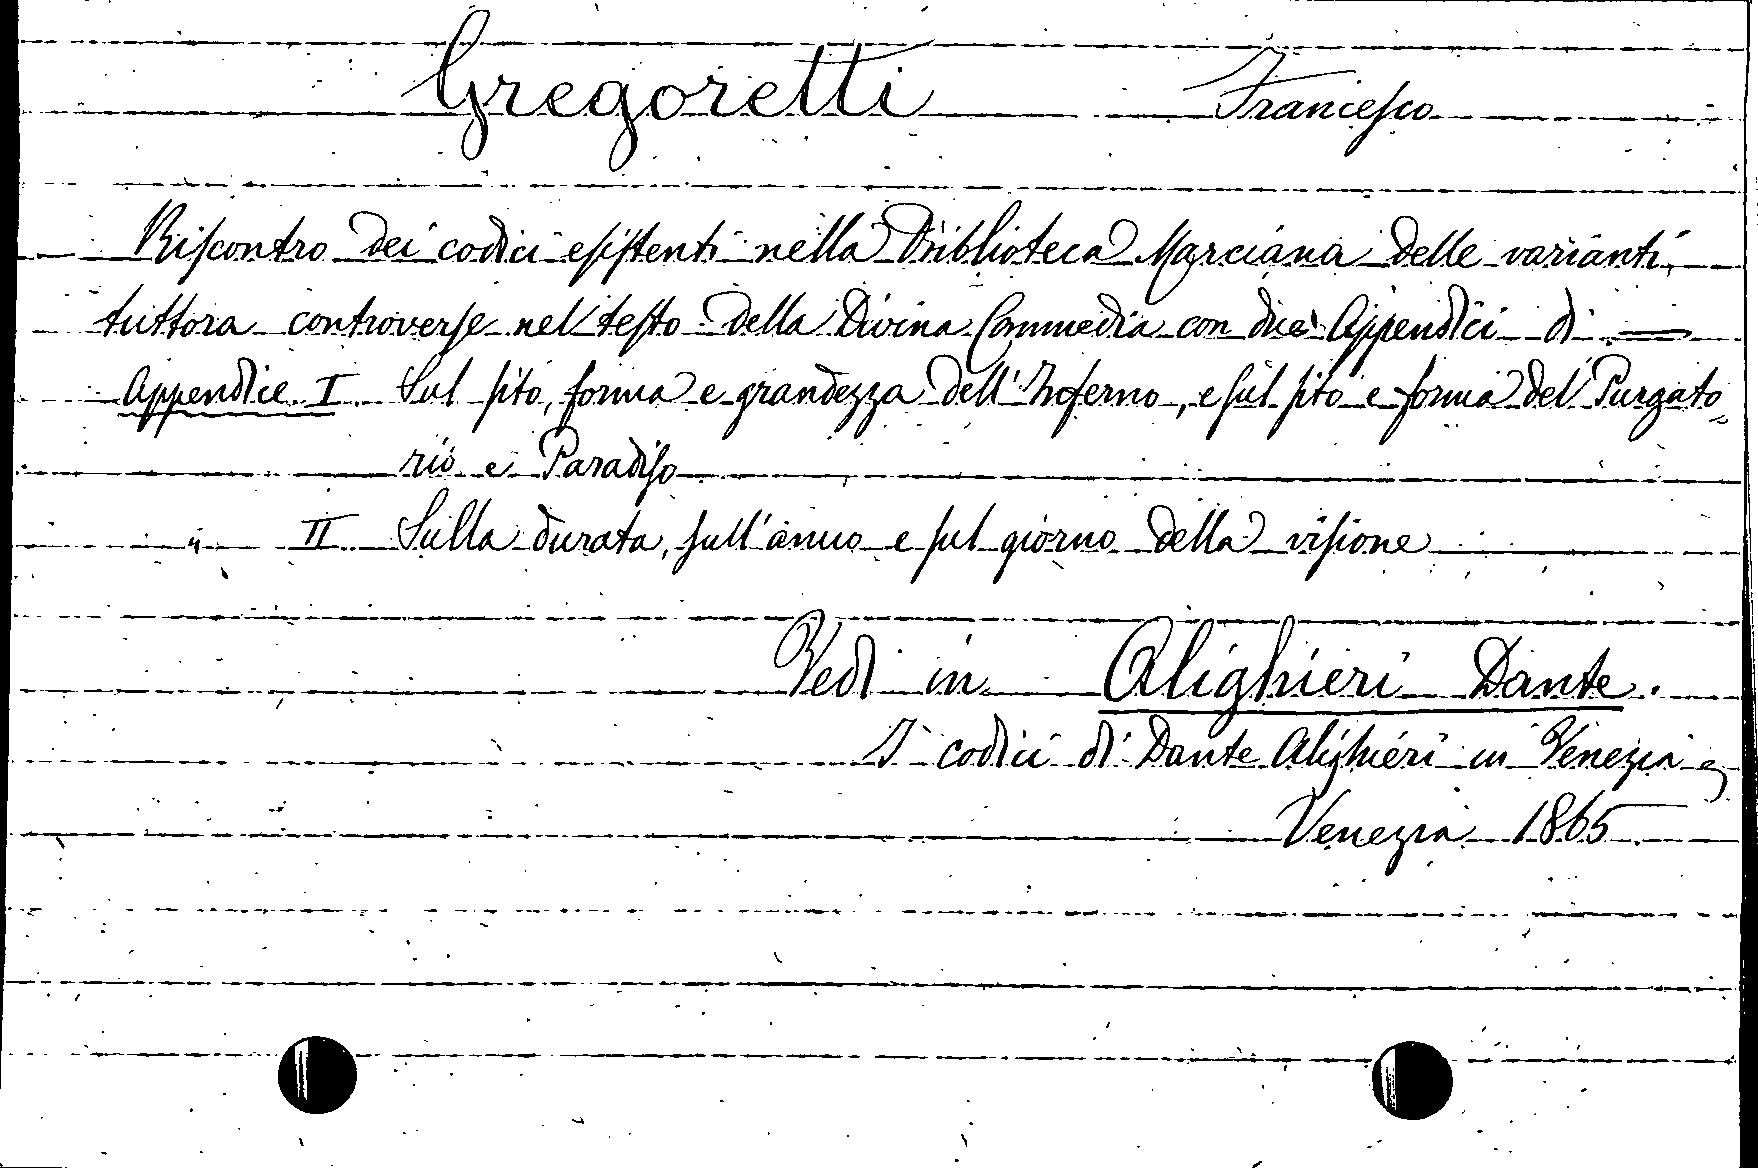 Gregoretti Francesco
Riscontro dei codici esistenti nella Biblioteca Marciana delle varianti,
tuttora controverse nel testo della Divina Commedia con due Appendici di —
Appendice I Sul sito, forma e grandezza dell'Inferno, e sul sito e forma del Purgato-
rio e Paradiso
" II Sulla durata, sull'anno e sul giorno della visione
Vedi in Alighieri Dante.
I codici di Dante Alighieri in Venezia
Venezia 1865